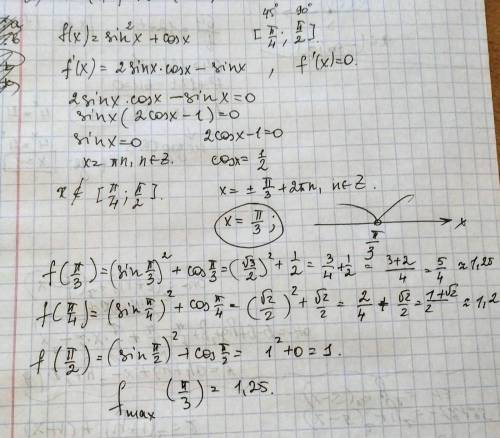 45° 90°
f(x) = sin²x + cosx [π/4; π/2]
f'(x) = 2sinx·cosx − sinx, f'(x)=0.
2sinx·cosx − sinx = 0
sinx(2cosx − 1) = 0
sinx = 0 2cosx − 1 = 0
x = πn, n∈Z. cosx = 1/2
x ∉ [π/4; π/2]. x = ± π/3 + 2πn, n∈Z.
x = π/3; π/3 x
f(π/3) = (sin π/3)² + cos π/3 = (√3/2)² + 1/2 = 3/4 + 1/2 = (3+2)/4 = 5/4 ≈ 1,25
f(π/4) = (sin π/4)² + cos π/4 = (√2/2)² + √2/2 = 2/4 + √2/2 = (1+√2)/2 ≈ 1,2
f(π/2) = (sin π/2)² + cos π/2 = 1² + 0 = 1.
fmax (π/3) = 1,25.